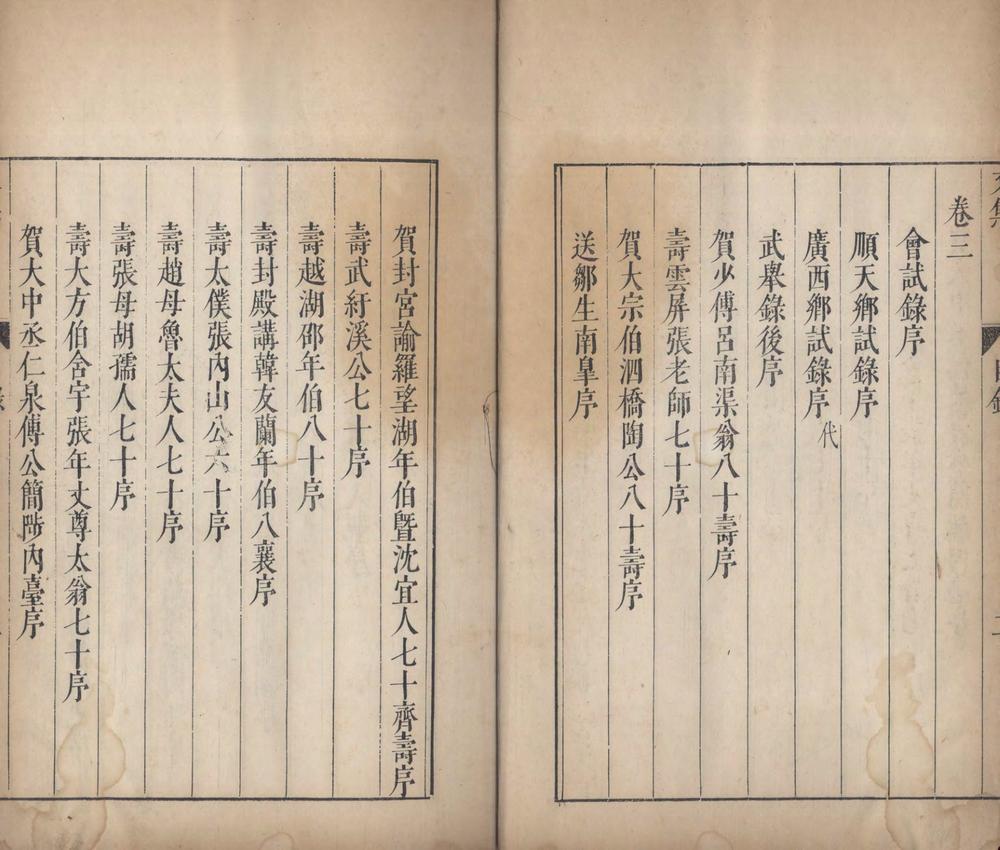 卷三
會試錄序
順天鄉試錄序
廣西鄉試錄序代
武舉錄後序
賀少傅呂南渠翁八十壽序
壽雲屏張老師七十序
賀大宗伯泗橋陶公八十壽序
送鄒生南臯序
賀封宮諭羅望湖年伯暨沈宜人七十齊壽序
壽武紆溪公七十序
壽越湖邵年伯八十序
壽封殿講韓友蘭年伯八襄序
壽太僕張內山公六十序
壽趙母魯太夫人七十序
壽張母胡孺人七十序
壽大方伯舍宇張年丈尊太翁七十序
賀大中丞仁泉傅公簡陟內臺序